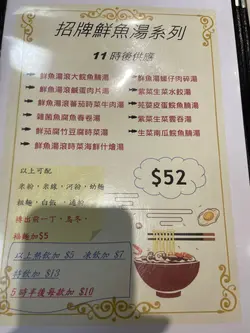 招牌鮮魚湯系列
11時後供應
鮮魚湯滾大鯇魚腩湯
鮮魚湯滾鹹蛋肉片湯
鮮魚湯滾蕃茄時菜牛肉湯
雜菌魚腐魚卷卷湯
鮮茄腐竹豆腐時菜湯
鮮魚湯滾時菜海鮮什燴湯
鮮魚湯蠔仔肉碎湯
紫菜生菜水餃湯
芫荽皮蛋鯇魚腩湯
紫菜生菜雲吞湯
生菜南瓜鯇魚腩湯
$52
以上可配
米粉,米線,河粉,幼麵
粗麵,白飯,通粉
轉出前一丁,烏冬,
稻麵加$5
以上熱飲加 $5 凍飲加 $7
特飲加 $13
5時半後每款加 $10